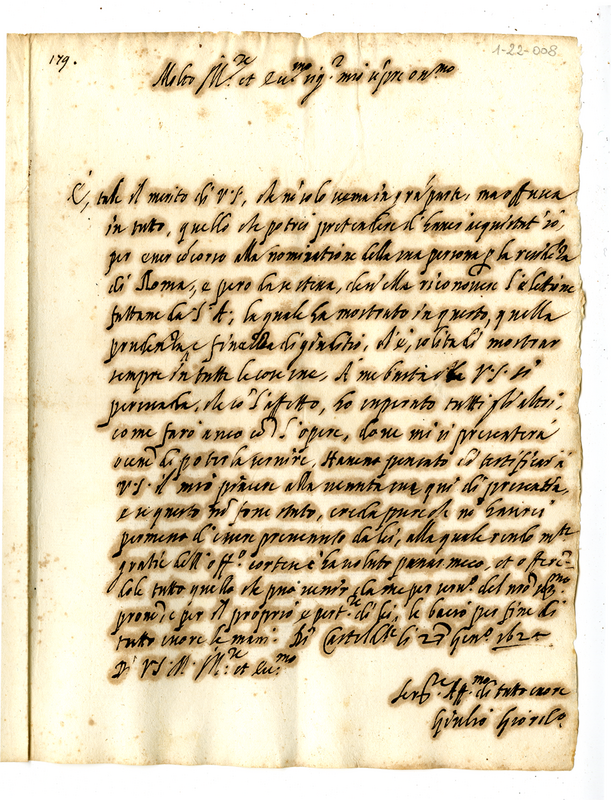 179.
1-22-008.
Molto Ill.re et Ecc.mo sig.r mio sig.re oss.mo
È, tale il merito di V.S. che nō solo scema in grā parte, ma offusca
in tutto, quello che potrei pretendere d'haver acquistat' io,
per esser cōcorso alla nominatione della sua persona p la residēza
di Roma, e però da se stessa, che ella riconosce l'elettione
fattane da S.A., la quale ha mostrato in questo, quella
prudenza e finezza di giuditio, ch'è, solita di mostrar
sempre in tutte le cose sue, A me basta che V.S. si
persuada, che cō l'affetto, ho superato tutti gli altri,
come farò anco cō l'opere, dove mi si presenterà
occ.ne di poterla servire, Havevo pensato di testificar à
V.S. il mio piacere alla venuta sua quì di presenza,
e se questo nō fosse stato, creda pure che nō havrei
permesso d'esser prevenuto da lei, alla quale rendo m.te
gratie dell' off.o cortese c'ha voluto passar meco, et offerē-
dole tutto quello che può venir da me per serv.o del nrō
prone, e per il proprio e part.re di lei, le bacio per fine di
tutto cuore le mani. Di li 23 Gen.o 1624
Di V.S. M. Ill.re et Ecc.mo
Ser.re Aff.mo di tutto cuore
Giulio